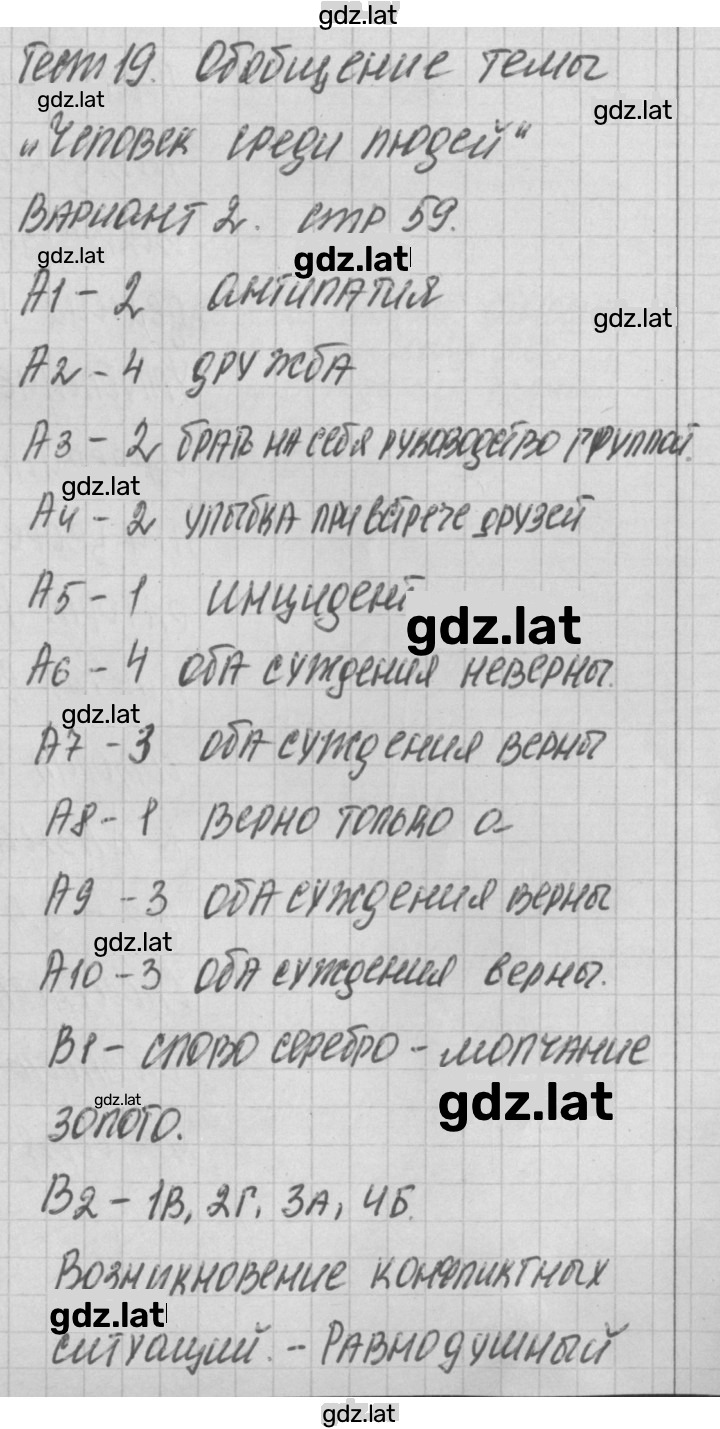 gdz.lat
Тест 19. Обобщение темы
gdz.lat
gdz.lat
„Человек среди людей“
Вариант 2. стр 59.
gdz.lat
gdz.lat
А1 - 2 антипатия
gdz.lat
А2 - 4 дружба
А3 - 2 брать на себя руководство группой.
gdz.lat
А4 - 2 улыбка при встрече друзей
А5 - 1 инцидент
gdz.lat
А6 - 4 оба суждения неверны.
gdz.lat
А7 - 3 оба суждения верны
А8 - 1 верно только а
А9 - 3 оба суждения верны
gdz.lat
А10 - 3 оба суждения верны.
В1 - слово серебро - молчание
gdz.lat
gdz.lat
золото.
В2 - 1В, 2Г, 3А, 4Б.
Возникновение конфликтных
gdz.lat
ситуаций. - Равнодушный
gdz.lat